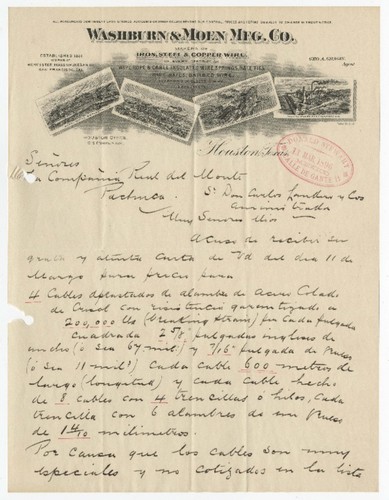 WASHBURN & MOEN MFG. CO.
IRON, STEEL & COPPER WIRE.
ESTABLISHED 1831
WORCESTER, MASS.
SAN FRANCISCO, CAL.
Agent
HOUSTON OFFICE.
Houston, Texas
Señores
La Compañia Real del Monte
Pachuca.
Sr Don Carlos Landero y Cos
Muy Senores Mios
Acuso de recibir su
grata y atenta carta de Vd del dia 11 de
Marzo para precio para
4 Cables de alambre de Acero Colado
de Crisol con resistencia garantizado a
200,000 lbs (Breaking Strain) por Cada pulgada
Cuadrada 2 5/8" pulgadas inglesas de
ancho (ó sea 67 mil.) y 7/16" pulgada de grueso
(ó sea 11 mil.) Cada cable 600 metros de
largo (longitud) y cada cable hecho
de 8 cables con 4 trencillas ó hilos, Cada
trencilla con 6 alambres de un grueso
de 1 4/10 milimetros.
Por causa que los cables son muy
especiales y no cotizados en la lista